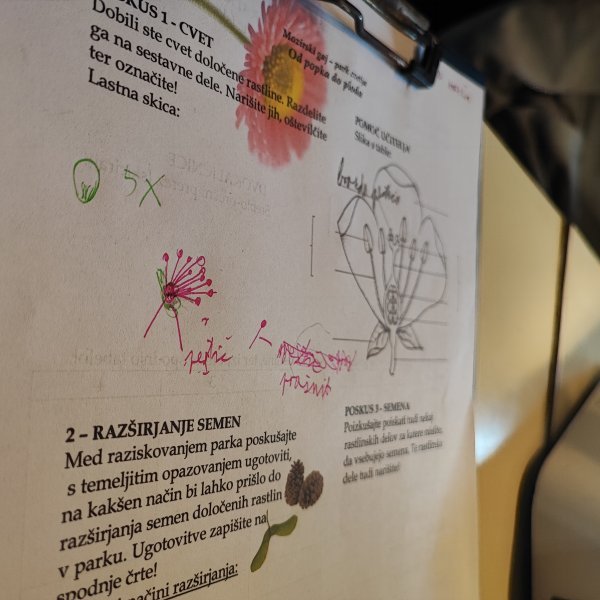 POSKUS 1 - CVET
Dobili ste cvet določene rastline. Razdelite
ga na sestavne dele. Narišite jih, oštevilčite
ter označite!
Lastna skica:
Mozirski gaj – park cvetja
Od popka do ploda
POMOČ UČITELJA
Slika v tabele:
5X
pestič
prašnik
2 – RAZŠIRJANJE SEMEN
Med raziskovanjem parka poskušajte
s temeljitim opazovanjem ugotoviti,
na kakšen način bi lahko prišlo do
razširjanja semen določenih rastlin
v parku. Ugotovitve zapišite na
spodnje črte!
načini razširjanja:
POSKUS 3 - SEMENA
Poizkušajte poiskati tudi nekaj
rastlinskih delov za katere mislite,
da vsebujejo semena. Te rastlinske
dele tudi narišite!